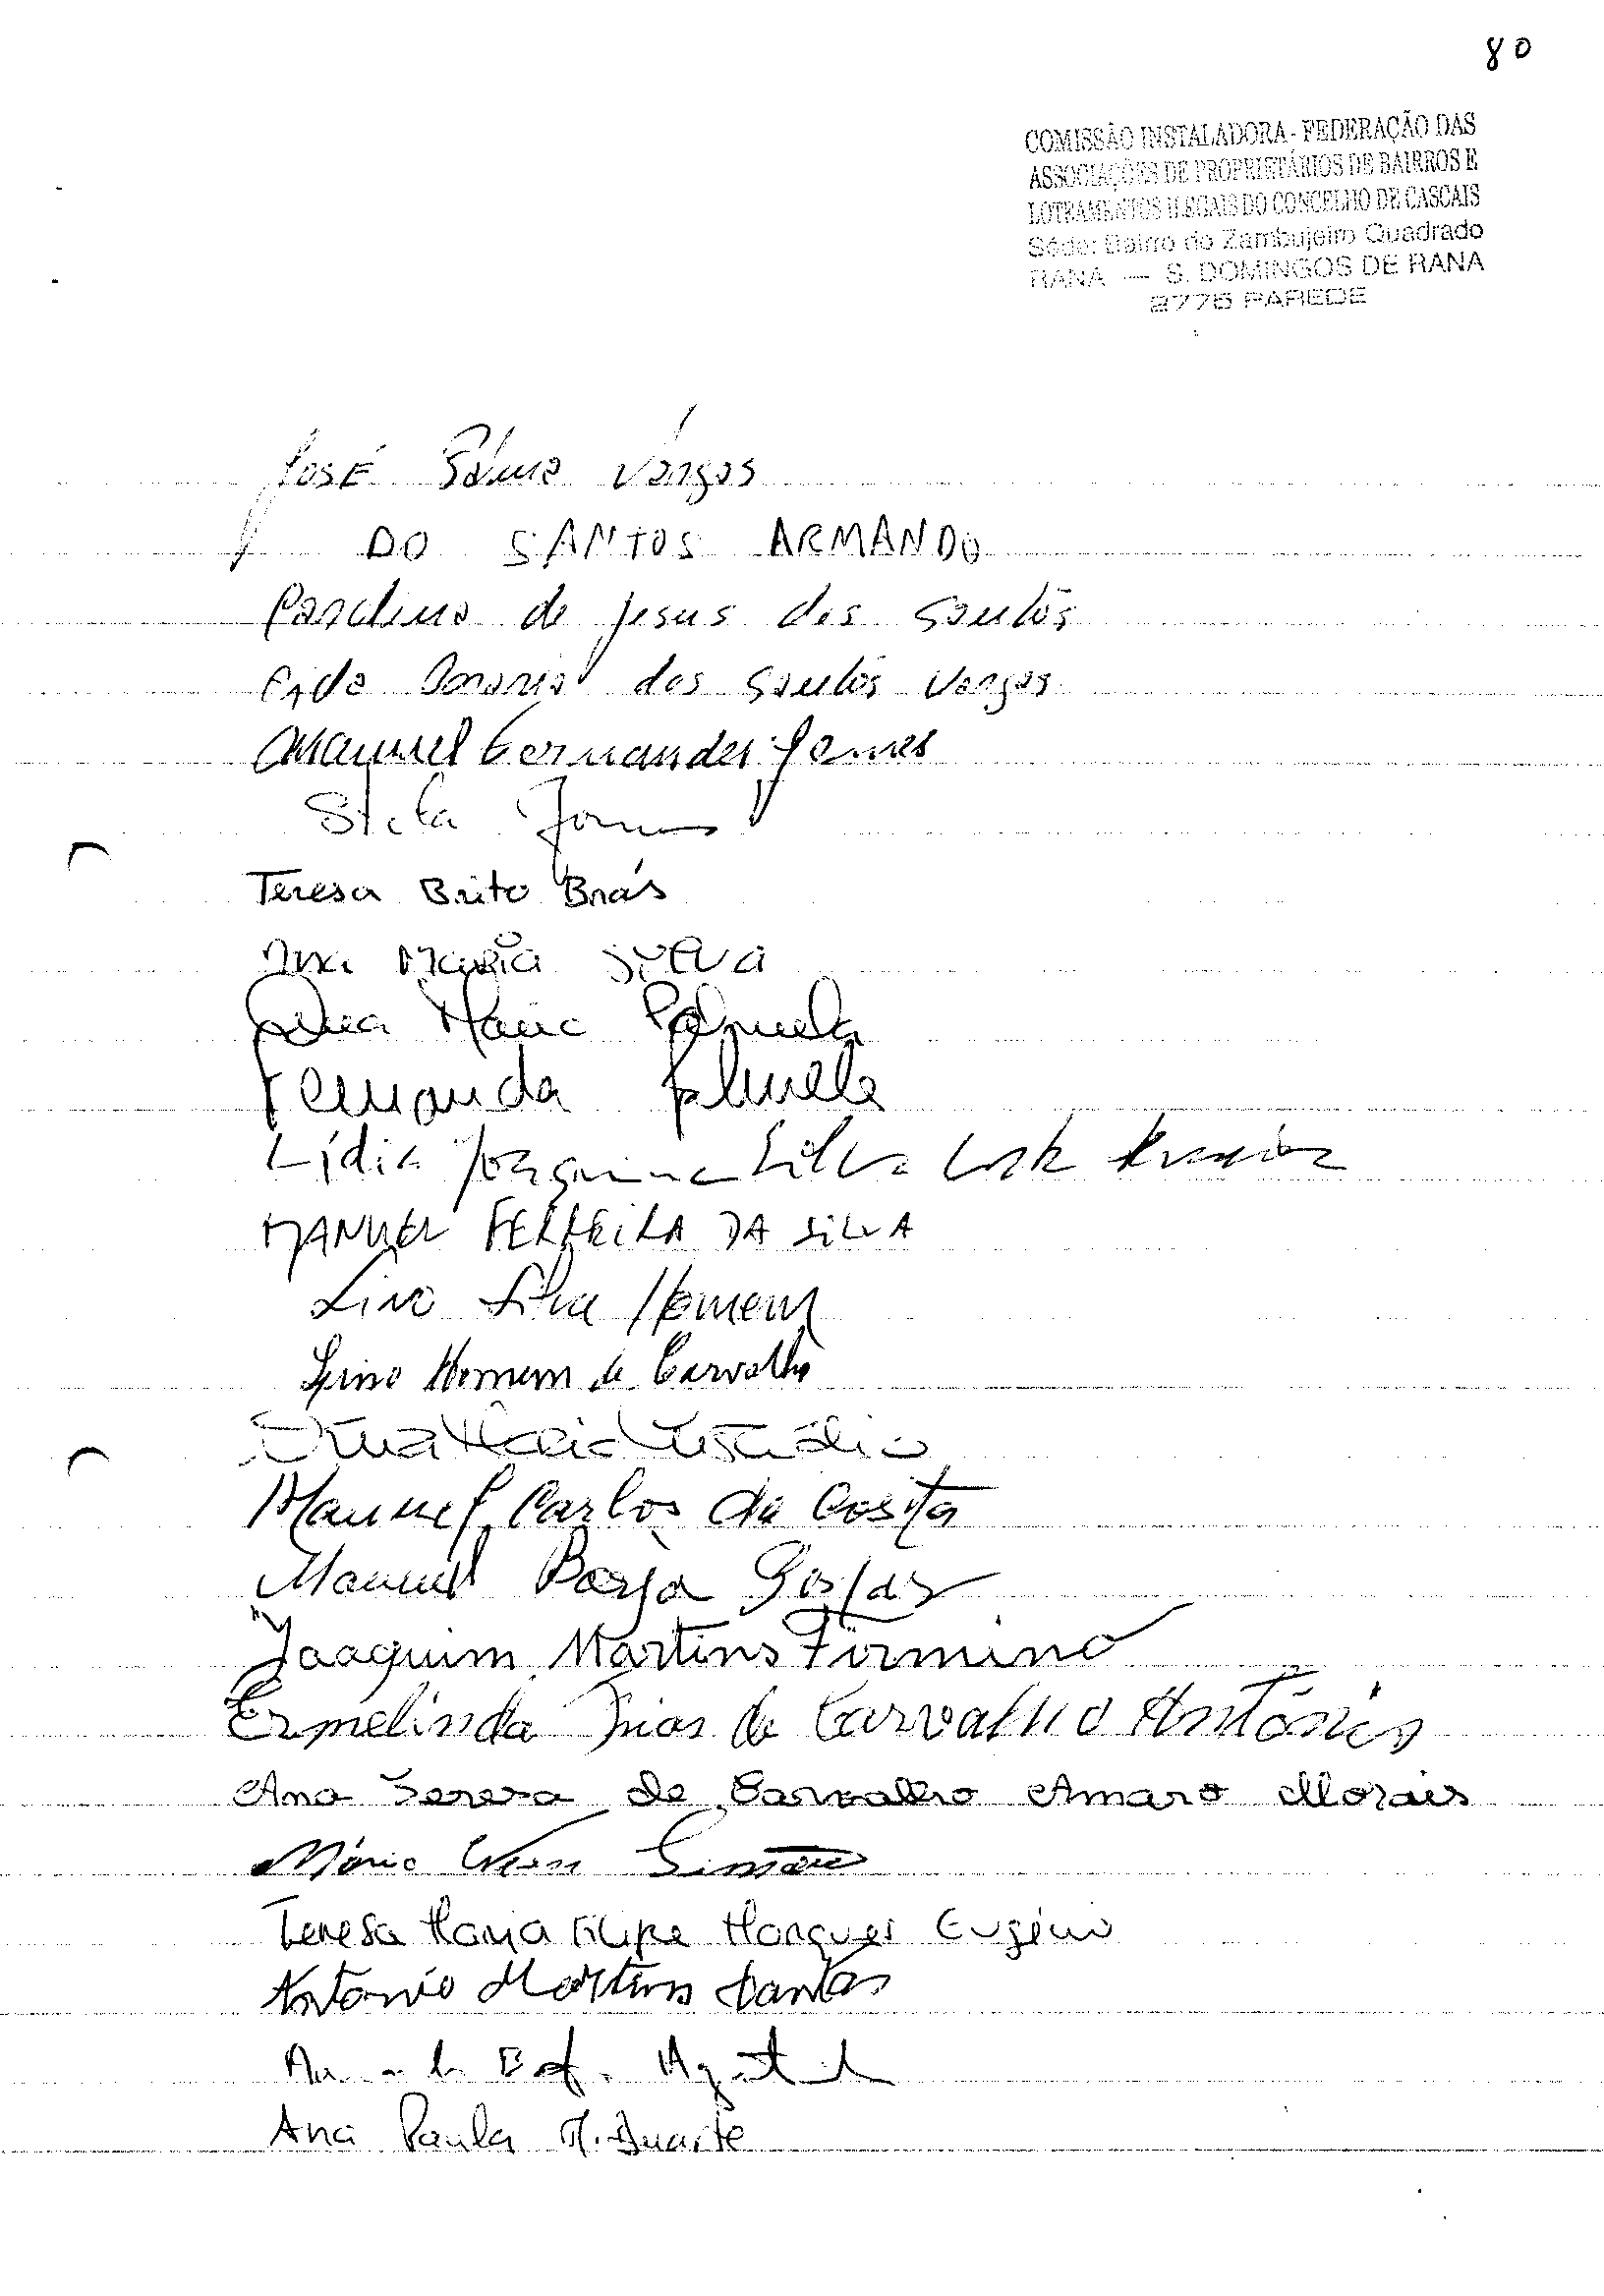 80
COMISSÃO INSTALADORA - FEDERAÇÃO DAS
ASSOCIAÇÕES DE PROPRIETÁRIOS DE BAIRROS E
LOTEAMENTOS ILEGAIS DO CONCELHO DE CASCAIS
Séde: Bairro do Zambujeiro Quadrado
RANA — S. DOMINGOS DE RANA
2775 PAREDE
JOSÉ Vargas
DO SANTOS ARMANDO
de Jesus dos Santos
dos Santos Vargas
Manuel Fernandes Gomes
Stela
Teresa Brito Brás
Ana Maria Silva
Maria Palmela
Fernanda Palmela
Lídia Joaquina Silva
MANUEL FERREIRA DA SILVA
Lino Silva Homem
Homem de Carvalho
Maria
Manuel Carlos da Costa
Manuel
Joaquim Martins Firmino
Ermelinda de Carvalho António
Ana Teresa de Carvalho Amaro Morais
Simões
Teresa Maria Filipe Marques Eugénio
António Martins Dantas
Ana Paula M. Duarte